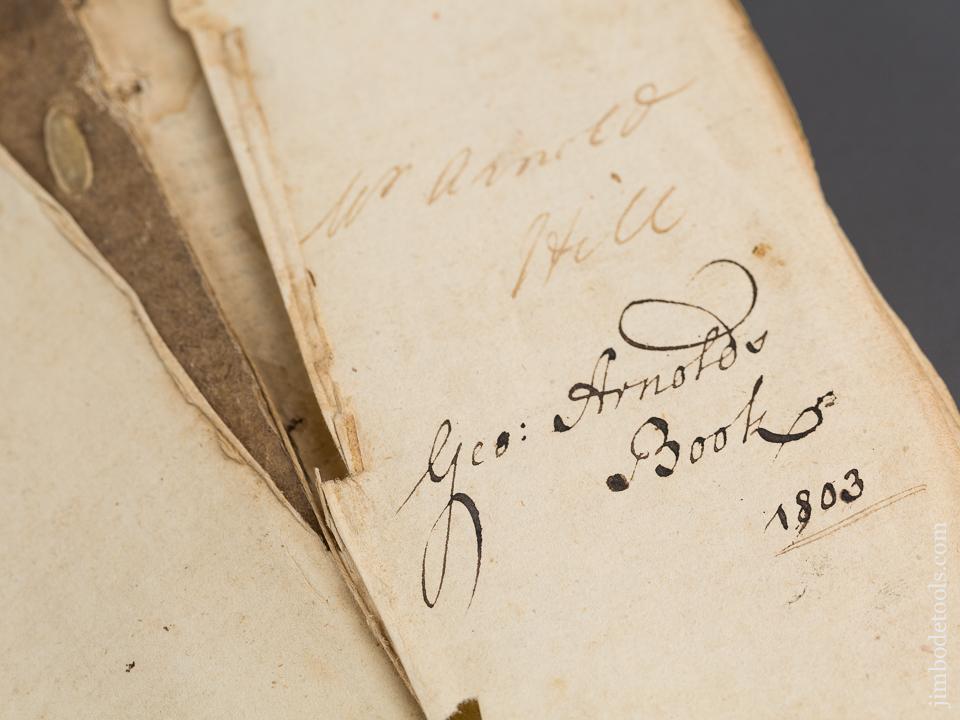 Mr Arnold
Hill
Geo: Arnolds
Book
1803
jimbodetools.com